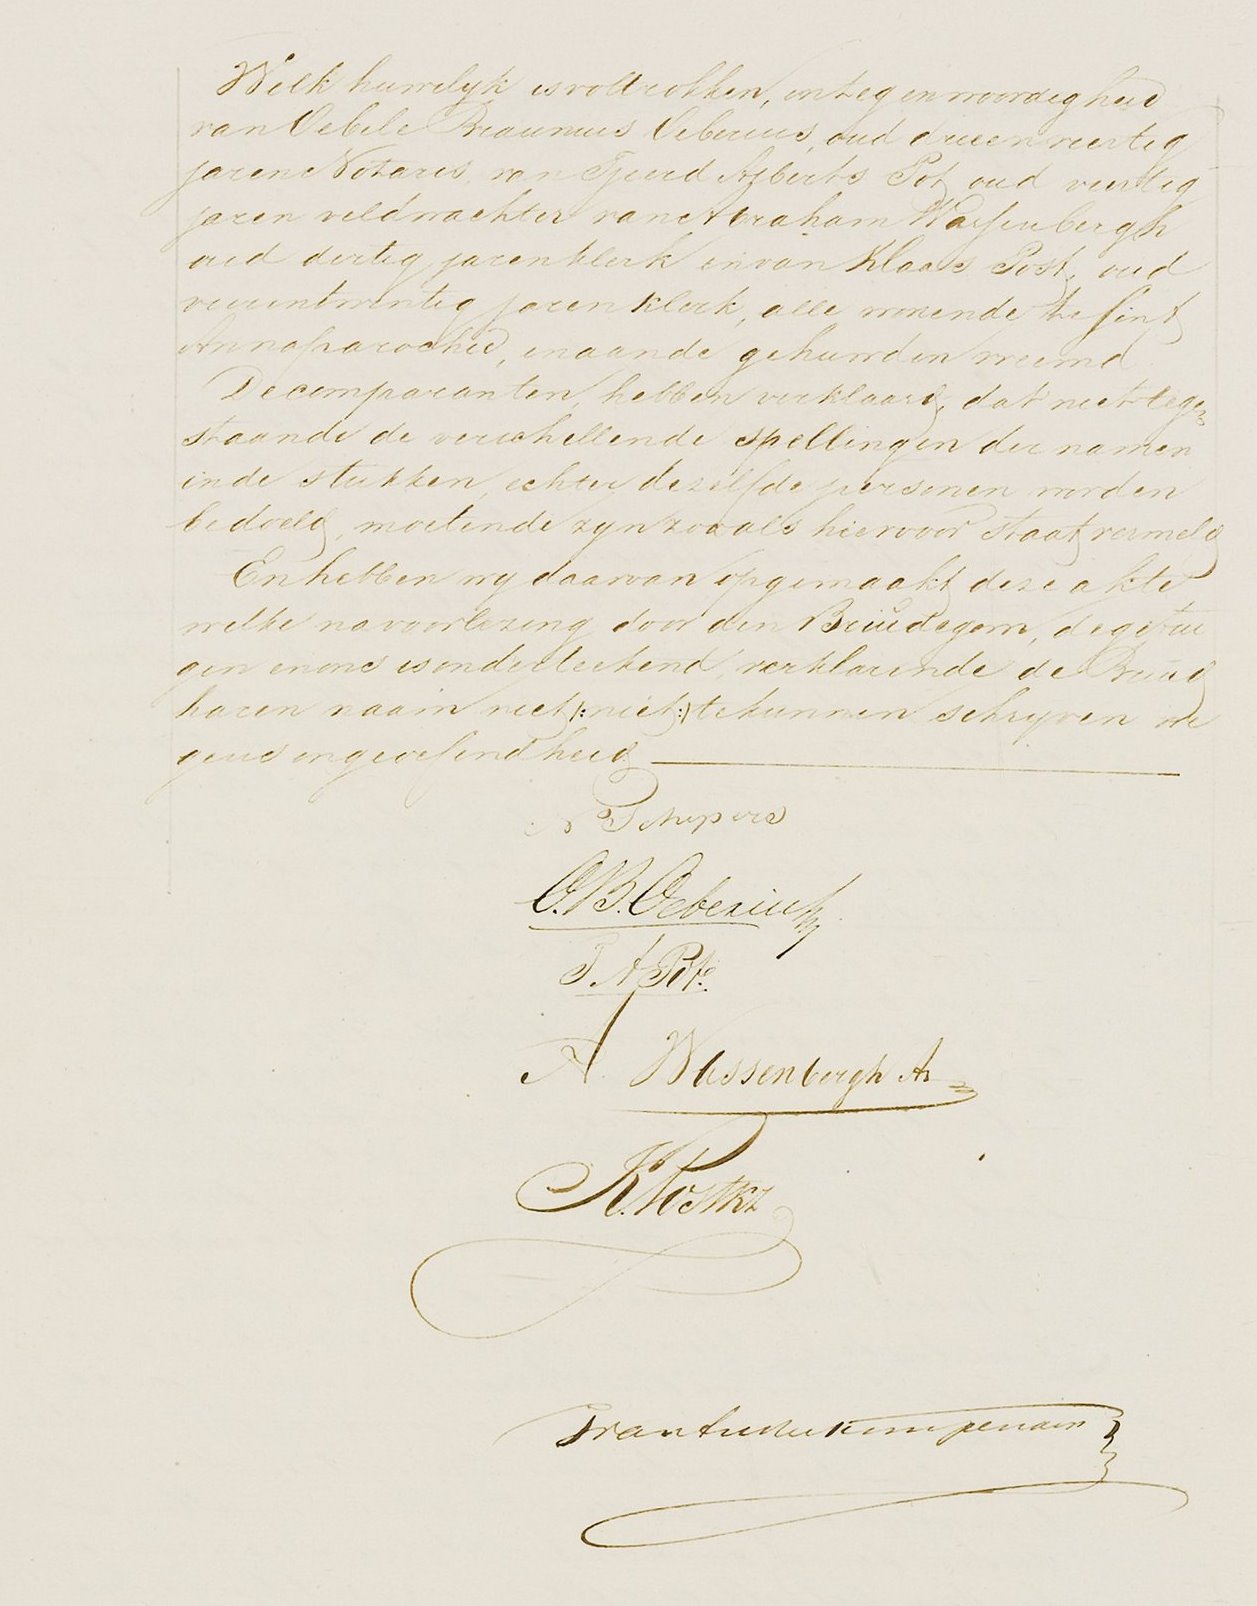 Welk huwelijk is voltrokken, in tegenwoordigheid
van Oebele Braunius Oeberius, oud drieenveertig
jaren Notaris, van Tjeerd Alberts Pot, oud veertig
jaren veldwachter van Abraham Wassenbergh
oud dertig jaren klerk en van Klaas Post, oud
vierentwintig jaren klerk, alle wonende te Sint
Annaparochie, en aan de gehuwden vreemd.
De comparanten, hebben verklaard, dat niet tegen
staande de verschillende spellingen der namen
in de stukken, echter dezelfde personen worden
bedoeld, moetende zyn zoo als hiervoor staat vermeld
En hebben wy daarvan opgemaakt deze akte
welke na voorlezing door den Bruidegom, de getui
gen en ons is onderteekend, verklarende de Bruid
haren naam niet (:niet:) te kunnen schryven we
gens ongeoefendheid
Schepers
O.B. Oeberius
T A Pot.
A. Wassenbergh Az
K. Post Kz